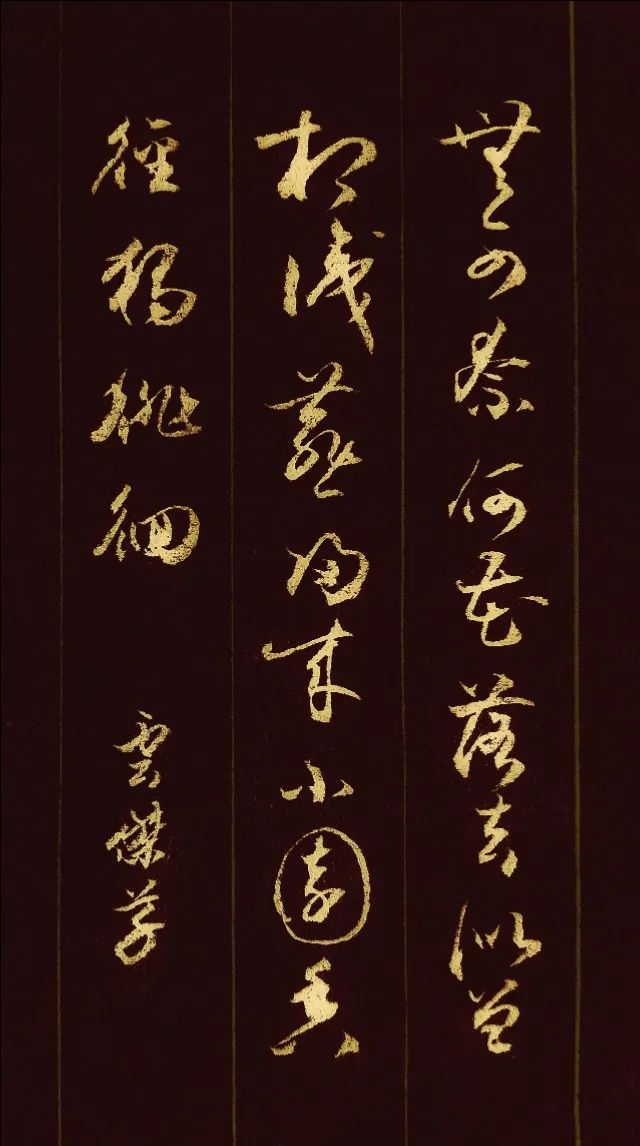 無可奈何花落去似曾
相識燕歸來小園香
徑獨徘徊
雲傑草